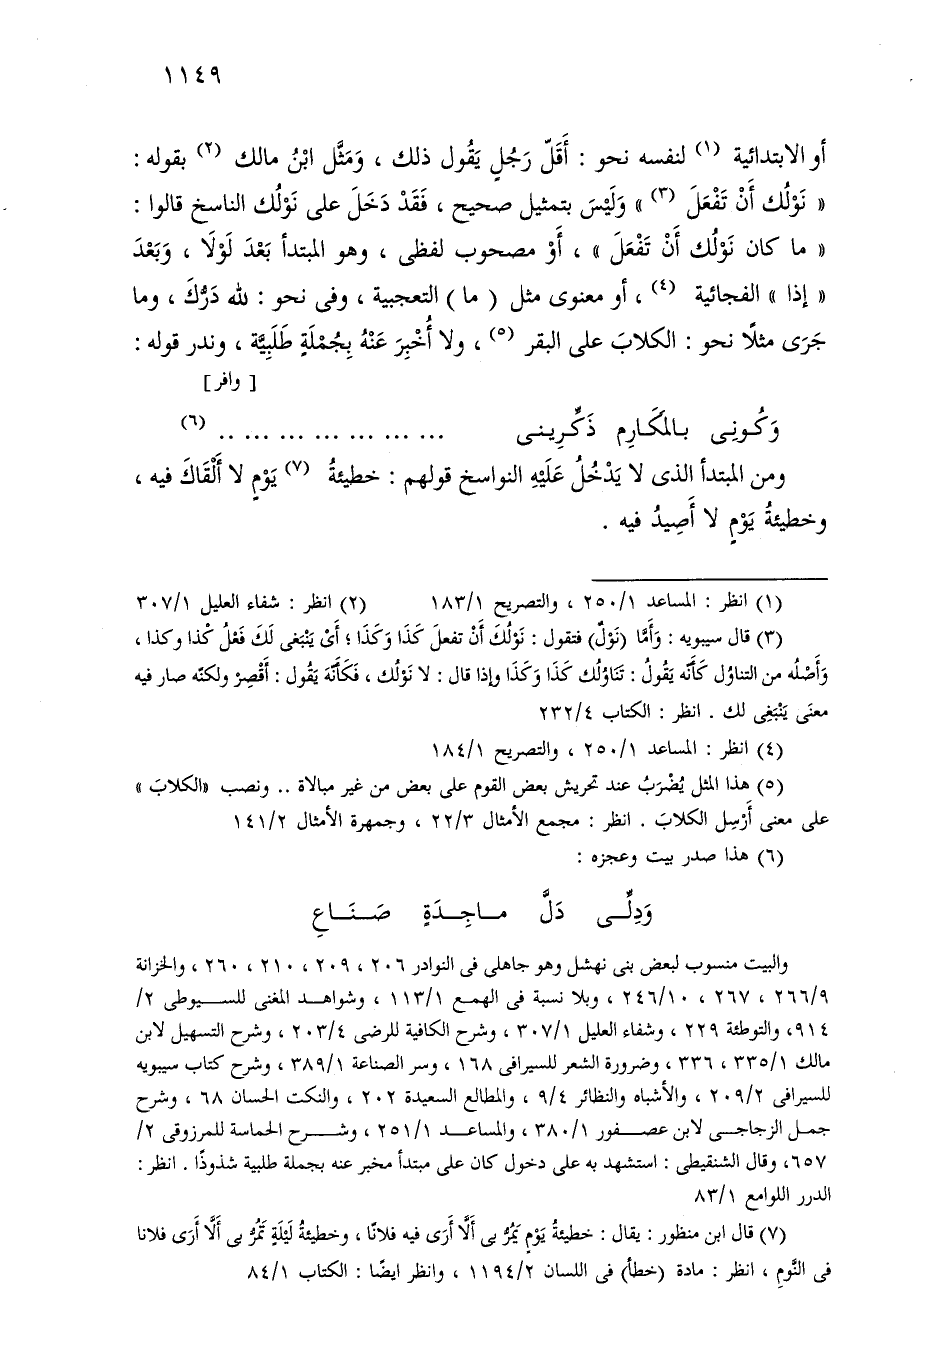 ١١٤٩
أو الابتدائية (١) لنفسه نحو : أَقَلّ رَجُلٍ يَقُول ذلك ، وَمَثَّل ابْنُ مالك (٢) بقوله :
« نَوْلُك أَنْ تَفْعَلَ (٣) » وَلَيْسَ بتمثيل صحيح ، فَقَدْ دَخَلَ على نَوْلُك الناسخ قالوا :
« ما كان نَوْلُك أَنْ تَفْعَلَ » ، أَوْ مصحوب لفظى ، وهو المبتدأ بَعْدَ لَوْلَا ، وَبَعْدَ
« إذا » الفجائية (٤) ، أو معنوى مثل ( ما ) التعجبية ، وفى نحو : لله دَرُّكَ ، وما
جَرَى مثلًا نحو : الكلابَ على البقر (٥) ، ولا أُخْبِرَ عَنْهُ بِجُمْلَةٍ طَلَبِيَّة ، وندر قوله :
[ وافر ]
وَكُونِى بالمَكَارِم ذَكِّرِينى ... ... ... ... ... ... .. (٦)
ومن المبتدأ الذى لا يَدْخُلُ عَلَيْهِ النواسخ قولهم : خطيئةُ (٧) يَوْمٍ لا أَلْقَاكَ فيه ،
وخطيئةُ يَوْمٍ لا أَصِيدُ فيه .
(١) انظر : المساعد ٢٥٠/١ ، والتصريح ١٨٣/١ (٢) انظر : شفاء العليل ٣٠٧/١
(٣) قال سيبويه : وَأَمَّا (نَوْلٌ) فتقول : نَوْلُكَ أَنْ تفعلَ كَذَا وَكَذَا ؛ أَىْ يَنْبَغى لَكَ فَعْلُ كْذا وكذا ،
وَأَصْلُه من التناوُل كَأَنّه يَقُولُ : تَنَاوُلك كَذَا وَكَذَا وإذا قال : لا نَوْلُك ، فَكَأَنَّهَ يَقُول : أَقْصِرْ ولكنّه صار فيه
معنَى يَنْبَغِى لك . انظر : الكتاب ٢٣٢/٤
(٤) انظر : المساعد ٢٥٠/١ ، والتصريح ١٨٤/١
(٥) هذا المثل يُضْرَبُ عند تحريش بعض القوم على بعض من غير مبالاة .. ونصب «الكلابَ »
على معنى أَرْسِل الكلابَ . انظر : مجمع الأمثال ٢٢/٣ ، وجمهرة الأمثال ١٤١/٢
(٦) هذا صدر بيت وعجزه :
وَدِلِّـــى دَلَّ مـــاجِـــدَةٍ صَـــنَـــاعِ
والبيت منسوب لبعض بنى نهشل وهو جاهلى فى النوادر ٢٠٦ ، ٢٠٩ ، ٢١٠ ، ٢٦٠ ، والخزانة
٢٦٦/٩ ، ٢٦٧ ، ٢٤٦/١٠ ، وبلا نسبة فى الهمع ١١٣/١ ، وشواهـد المغنى للسيوطى ٢/
٩١٤، والتوطئة ٢٢٩ ، وشفاء العليل ٣٠٧/١ ، وشرح الكافية للرضى ٢٠٣/٤ ، وشرح التسهيل لابن
مالك ٣٣٥/١ ، ٣٣٦ ، وضرورة الشعر للسيرافى ١٦٨ ، وسر الصناعة ٣٨٩/١ ، وشرح كتاب سيبويه
للسيرافى ٢٠٩/٢ ، والأشباه والنظائر ٩/٤ ، والمطالع السعيدة ٢٠٢ ، والنكت الحسان ٦٨ ، وشرح
جمـل الزجاجـى لابن عصـفور ٣٨٠/١ ، والمساعـد ٢٥١/١ ، وشـرح الحماسة للمرزوقى ٢/
٦٥٧، وقال الشنقيطى : استشهد به على دخول كان على مبتدأ مخبر عنه بجملة طلبية شذوذًا . انظر :
الدرر اللوامع ٨٣/١
(٧) قال ابن منظور : يقال : خطيئةُ يَوْمٍ يَمُرُّ بى أَلَّا أَرَى فيه فلانًا ، وخطيئةُ لَيْلَةٍ تَمُرُّ بى أَلَّا أَرَى فلانا
فى النَّومِ ، انظر : مادة (خطأ) فى اللسان ١١٩٤/٢ ، وانظر ايضًا : الكتاب ٨٤/١